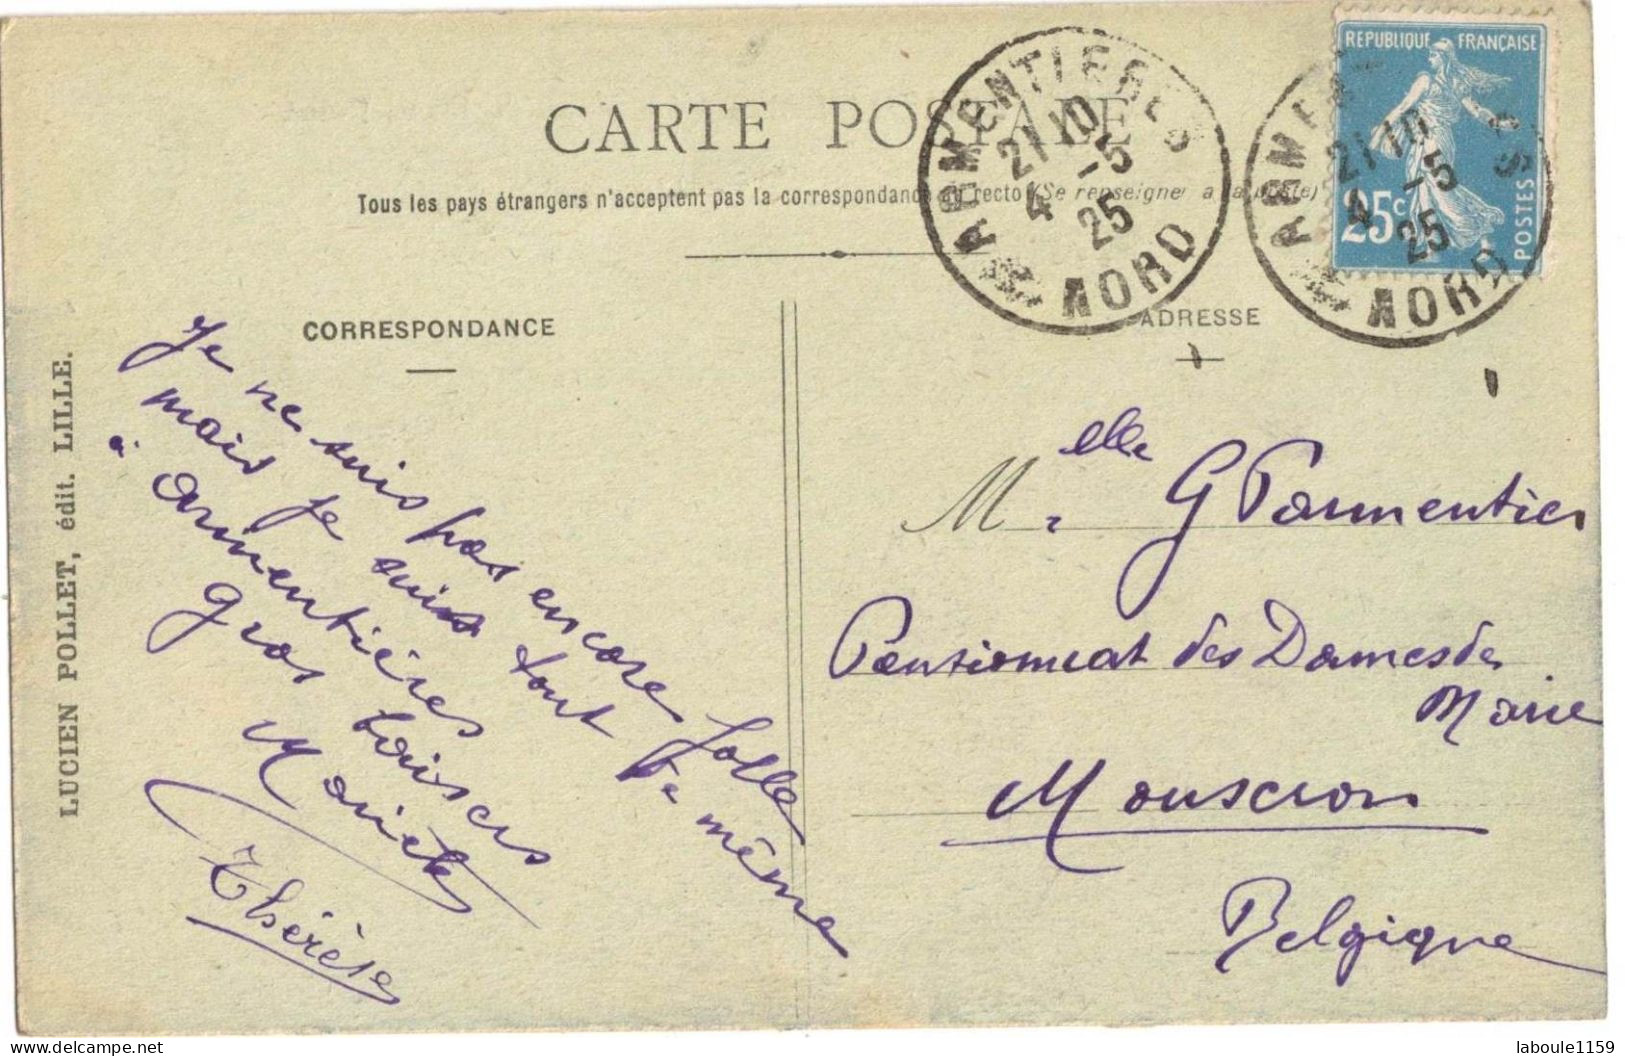 CARTE POSTALE
Tous les pays étrangers n'acceptent pas la correspondance au recto (Se renseigner à la poste)
ARMENTIERES
21 10
4 -5
25
NORD
REPUBLIQUE FRANÇAISE
25c
POSTES
ARMEN S
21 10
4 -5
25
NORD
CORRESPONDANCE
ADRESSE
LUCIEN POLLET, édit. LILLE.
Je ne suis pas encore folle
mais je suis tout de même
à armentières
gros baisers
Thérèse
Melle G Parmentier
Pensionnat des Dames de
Marie
Mouscron
Belgique
laboule1159